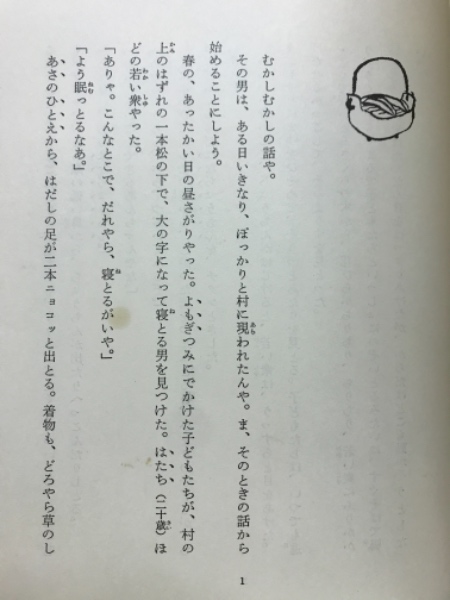 むかしむかしの話や。
その男は、ある日いきなり、ぽっかりと村に現われたんや。ま、そのときの話から
始めることにしよう。
春の、あったかい日の昼さがりやった。よもぎつみにでかけた子どもたちが、村の
上のはずれの一本松の下で、大の字になって寝とる男を見つけた。はたち（二十歳）ほ
どの若い衆やった。
「ありゃ。こんなとこで、だれやら、寝とるがいや。」
「よう眠っとるなあ。」
あさのひとえから、はだしの足が二本ニョコッと出とる。着物も、どろやら草のし
1